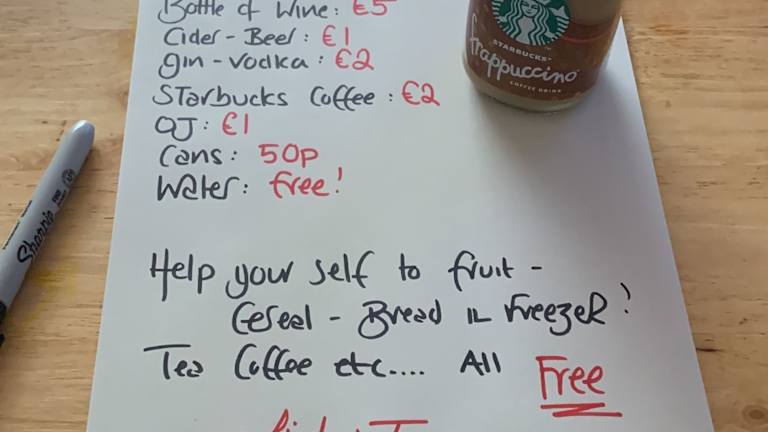 Bottle of Wine: €5
Cider - Beer: €1
Gin - Vodka: €2
Starbucks Coffee: €2
OJ: €1
Cans: 50p
Water: free!
Help your self to fruit -
Cereal - Bread in Freezer!
Tea Coffee etc.... All Free
STARBUCKS
frappuccino
COFFEE DRINK
Sharpie